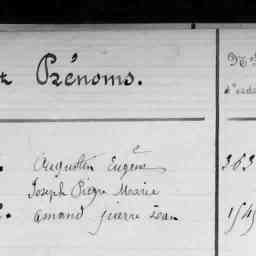 Prénoms.
Augustin Eugène 363
Joseph Pierre Marie
Amand pierre Jean